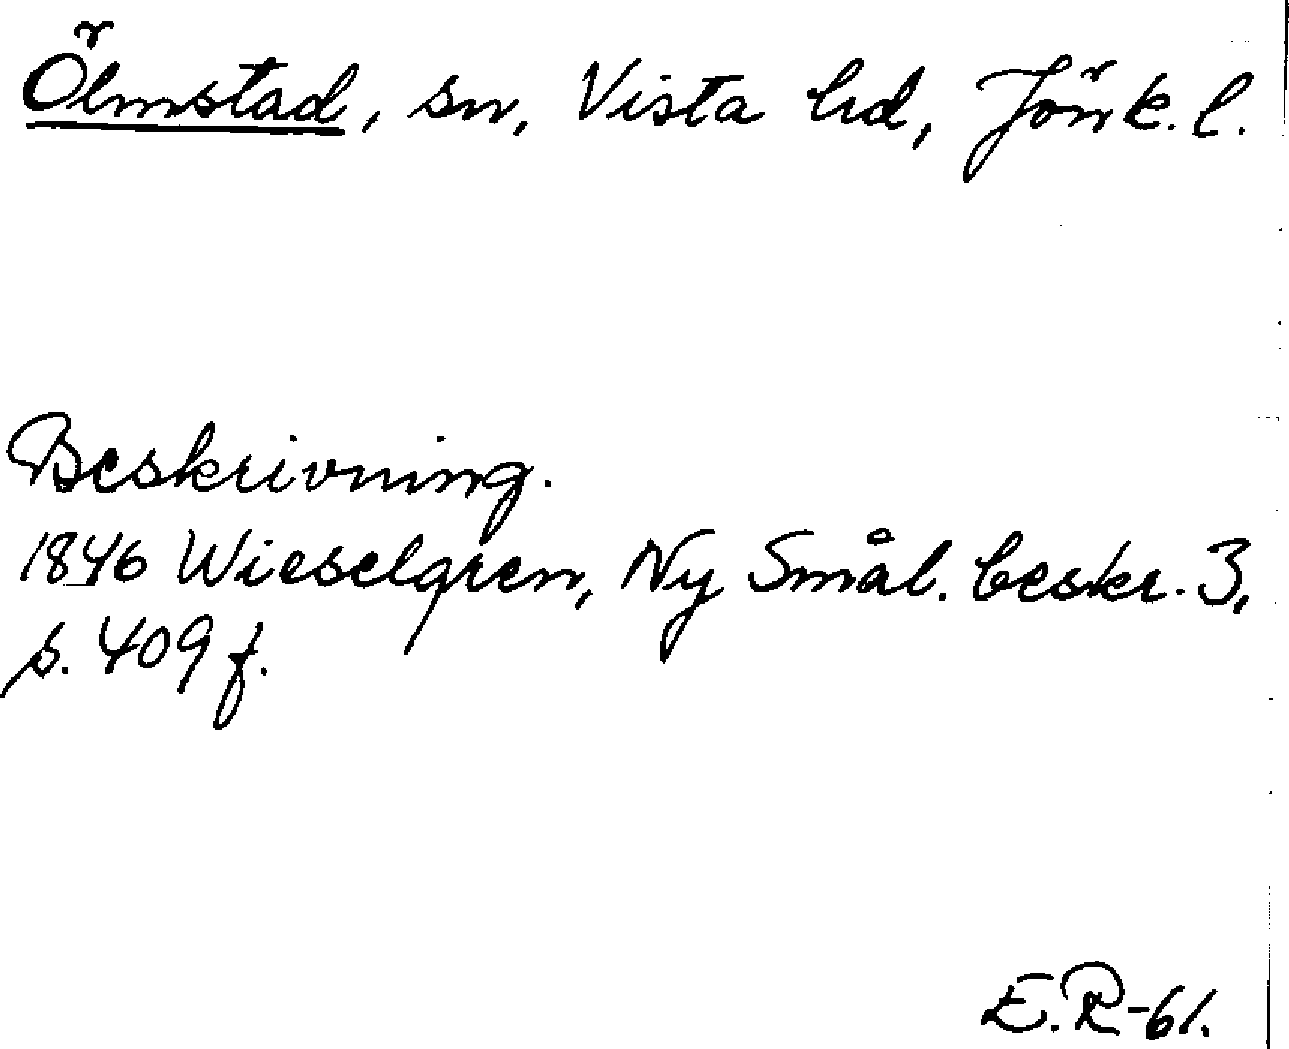 Ölmstad, sn, Vista hd, Jönk. l.
Beskrivning.
1846 Wieselgren, Ny Smål. beskr. 3,
s. 409 f.
E.R-61.